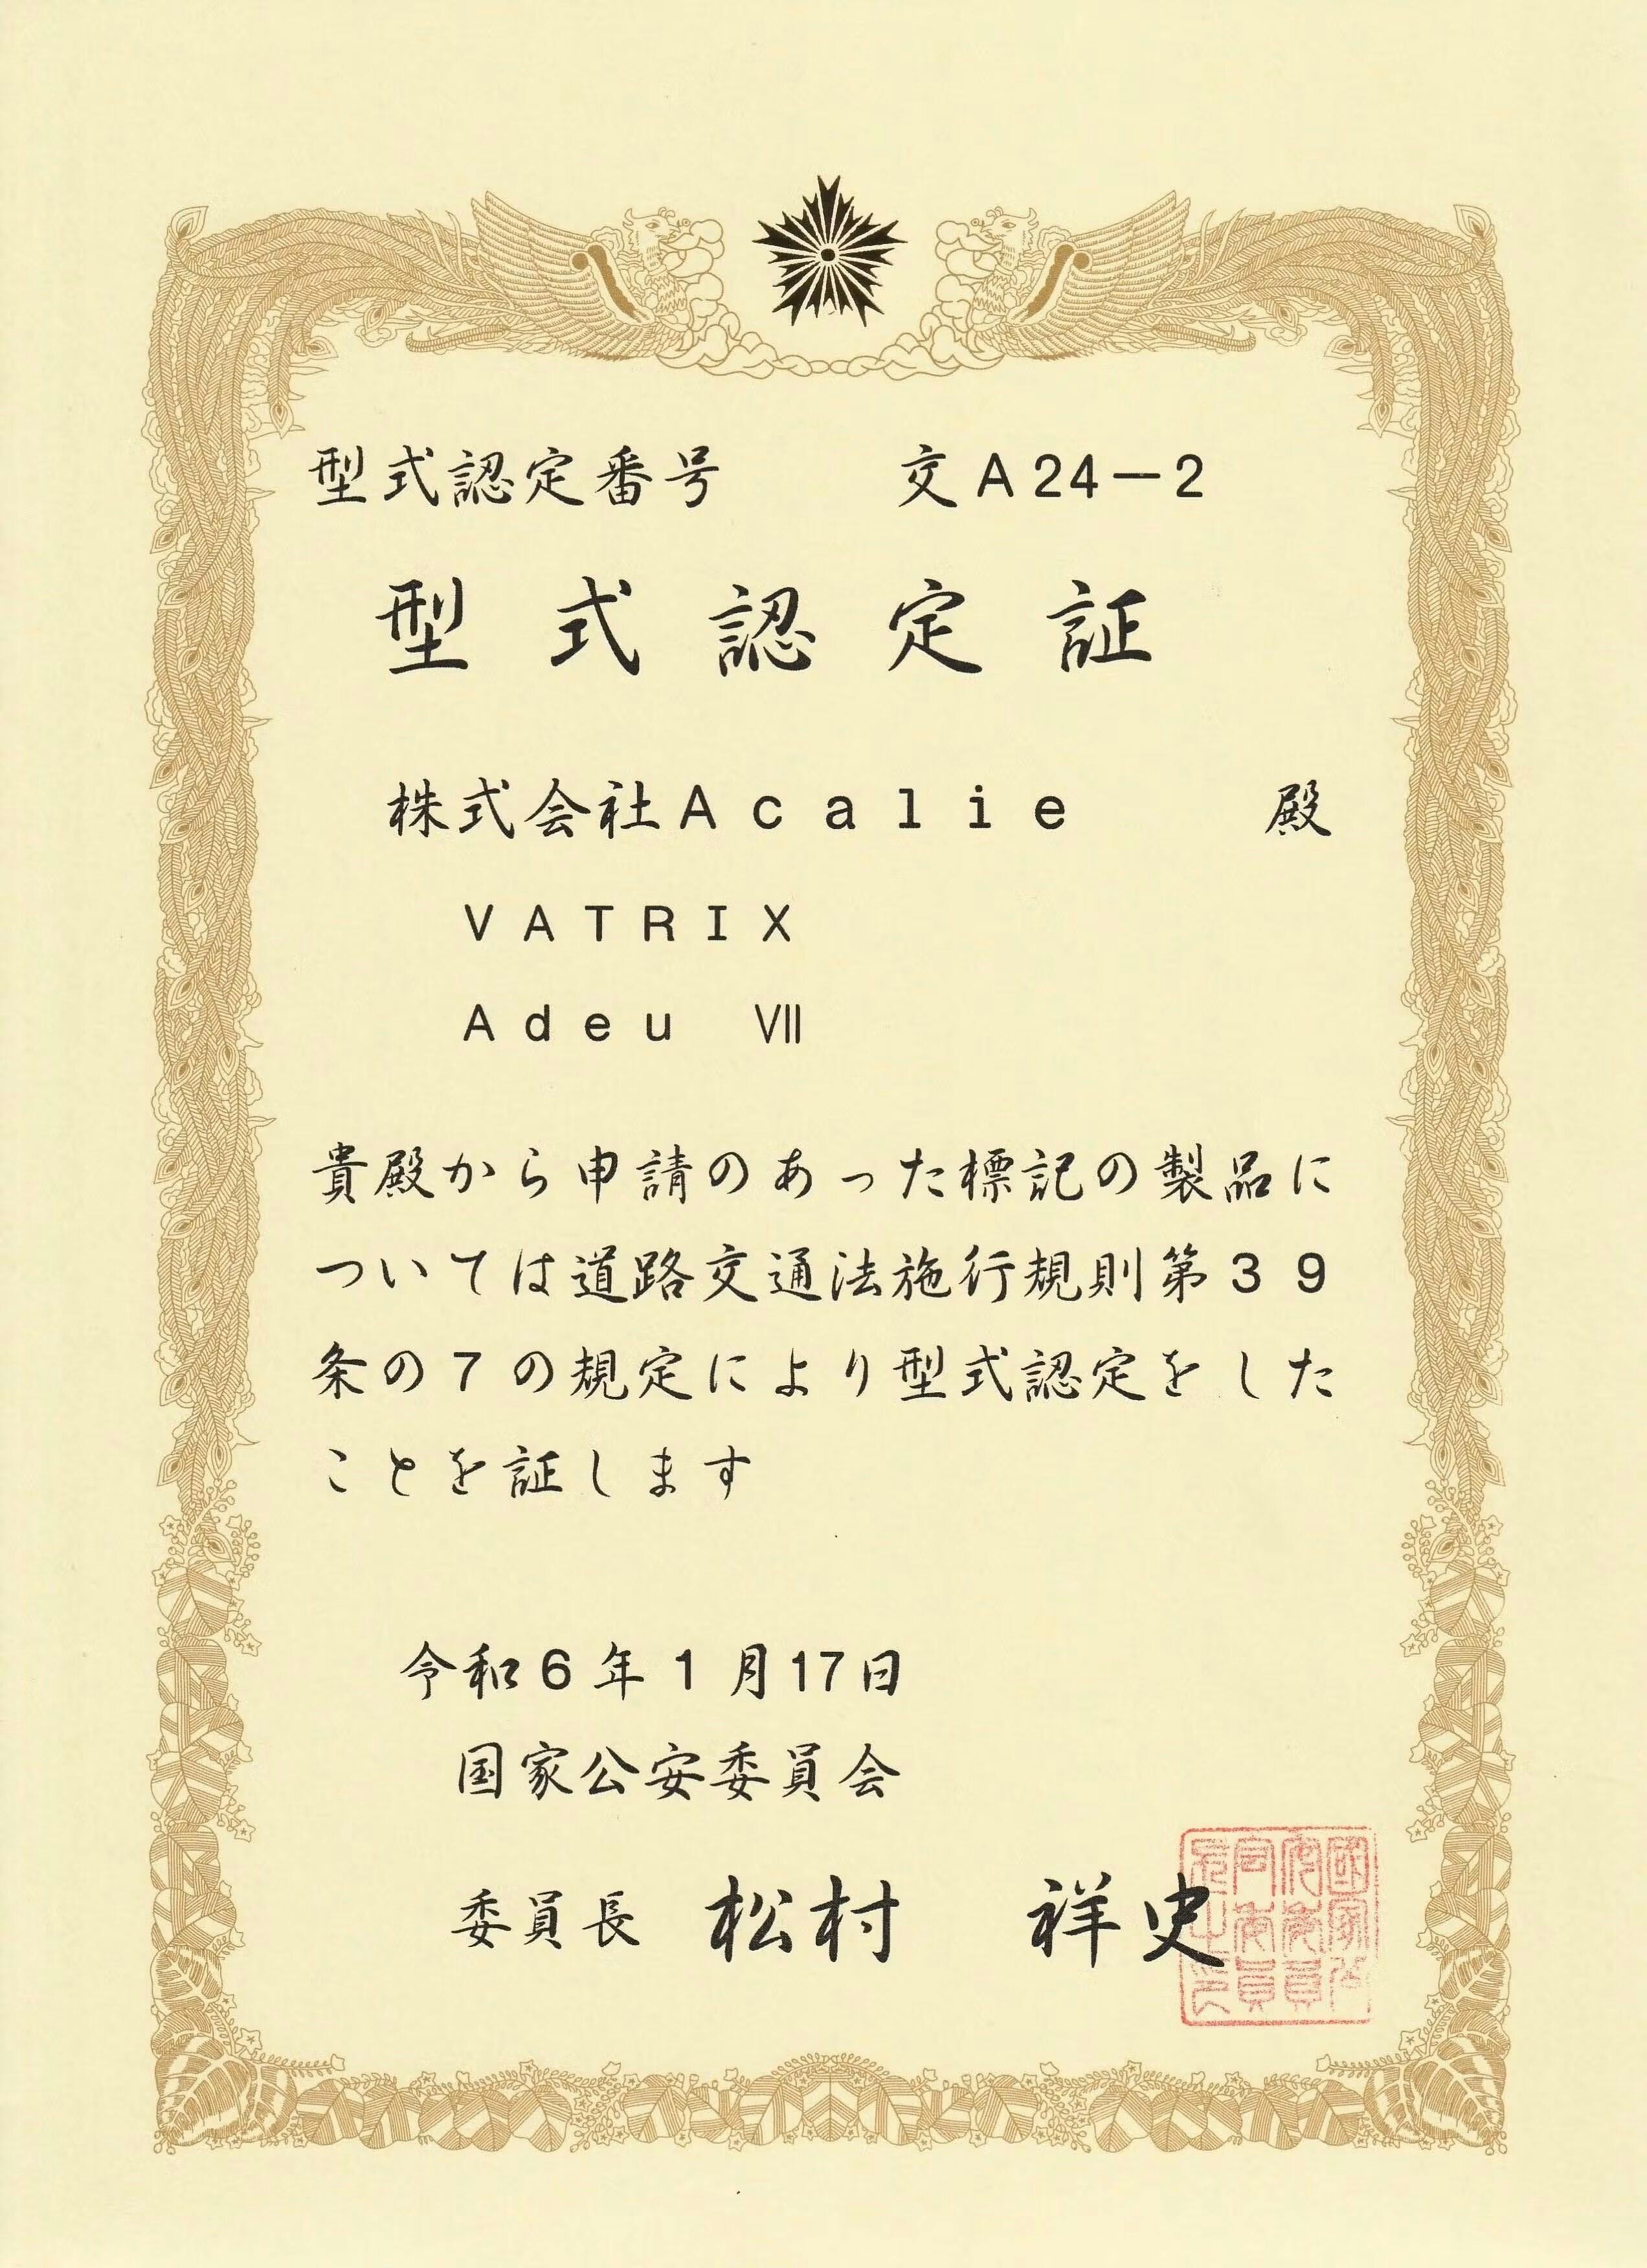 型式認定番号　交A24－2
型式認定証
株式会社Acalie　殿
VATRIX
Adeu Ⅶ
貴殿から申請のあった標記の製品に
ついては道路交通法施行規則第39
条の7の規定により型式認定をした
ことを証します
令和6年1月17日
国家公安委員会
委員長　松村　祥史